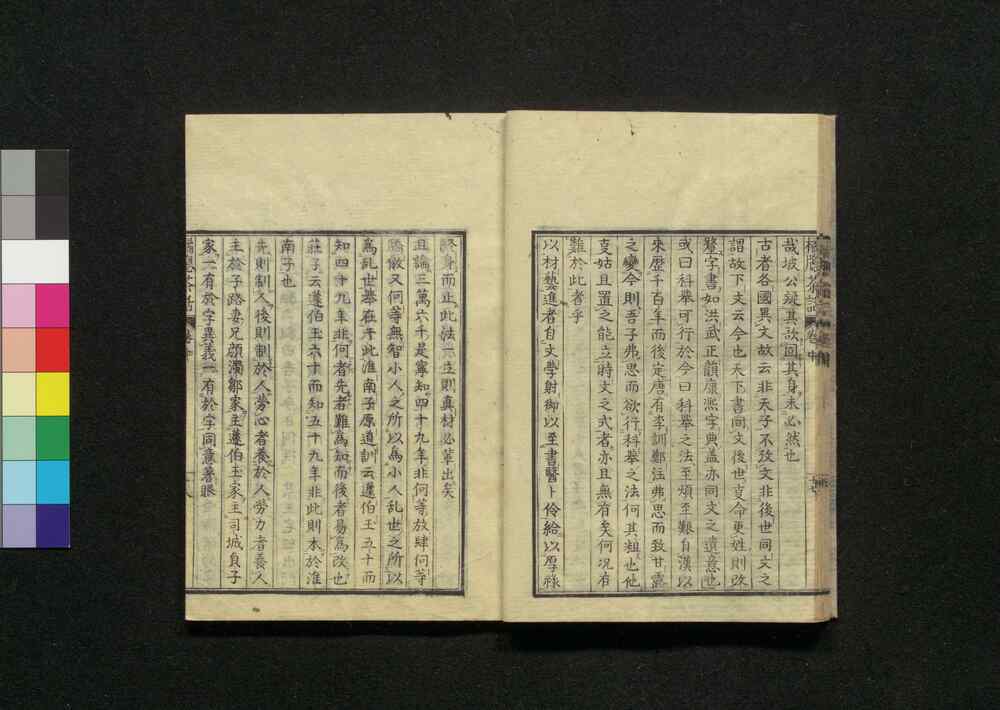 哉坡公疑其訟回其身未必然也
古者各國異文故云非天子不攷文非後世同文之
謂故下文云今也天下書同文後世夏命更姓則改
驚字書如洪武正韻康熙字典盖亦同文之遺意也
或曰科擧可行於今曰科擧之法至煩至艱自漢以
來歷千百年而後定唐有李訓鄭注弗思而致甘露
之變今則吾子弗思而欲行科擧之法何其粗也他
叓姑且置之能立時文之式者亦且無有矣何况有
難於此者乎
以材藝進者自文學射御以至書醫卜伶給以厚祿
終身而止此法一立則眞材必輩出矣
且論三萬六千是寧知四十九年非何等放肆何等
驕傲又何等無智小人之所以爲小人乱世之所以
爲乱世擧在于此淮南子原道訓云蘧伯玉五十而
知四十九年非何者先者難爲知而後者易爲攻也
莊子云蘧伯玉六十而知五十九年非此則本於淮
南子也
先則制人後則制於人勞心者養於人勞力者養人
主於子路妻兄顔濁鄒家主蘧伯玉家主司城貞子
家一有於字異義一有於字同意著眼